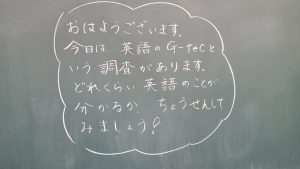 おはようございます。
今日は、英語のG-tecと
いう調査があります。
どれくらい英語のことが
分かるか、ちょうせんして
みましょう!